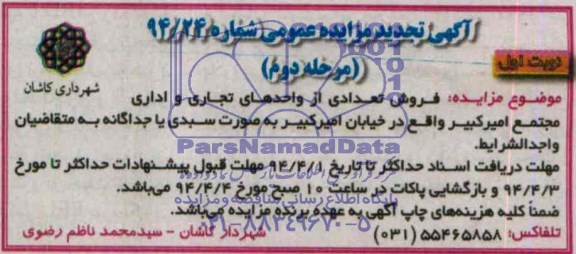 آگهی تجدید مزایده عمومی شماره ۹۴/۲۴
(مرحله دوم)
نوبت اول
شهرداری کاشان
موضوع مزایده: فروش تعدادی از واحدهای تجاری و اداری
مجتمع امیرکبیر واقع در خیابان امیرکبیر به صورت سبدی یا جداگانه به متقاضیان
واجدالشرایط.
ParsNamadData
مهلت دریافت اسناد حداکثر تا تاریخ ۹۴/۴/۱ مهلت قبول پیشنهادات حداکثر تا مورخ
۹۴/۴/۳ و بازگشایی پاکات در ساعت ۱۰ صبح مورخ ۹۴/۴/۴ می‌باشد.
پایگاه اطلاع رسانی مناقصه و مزایده
ضمناً کلیه هزینه‌های چاپ آگهی به عهده برنده مزایده می‌باشد.
۰۲۱-۸۸۳۴۹۶۷۰-۵
تلفاکس: ۵۵۴۶۵۸۵۸ (۰۳۱)
شهردار کاشان - سیدمحمد ناظم رضوی